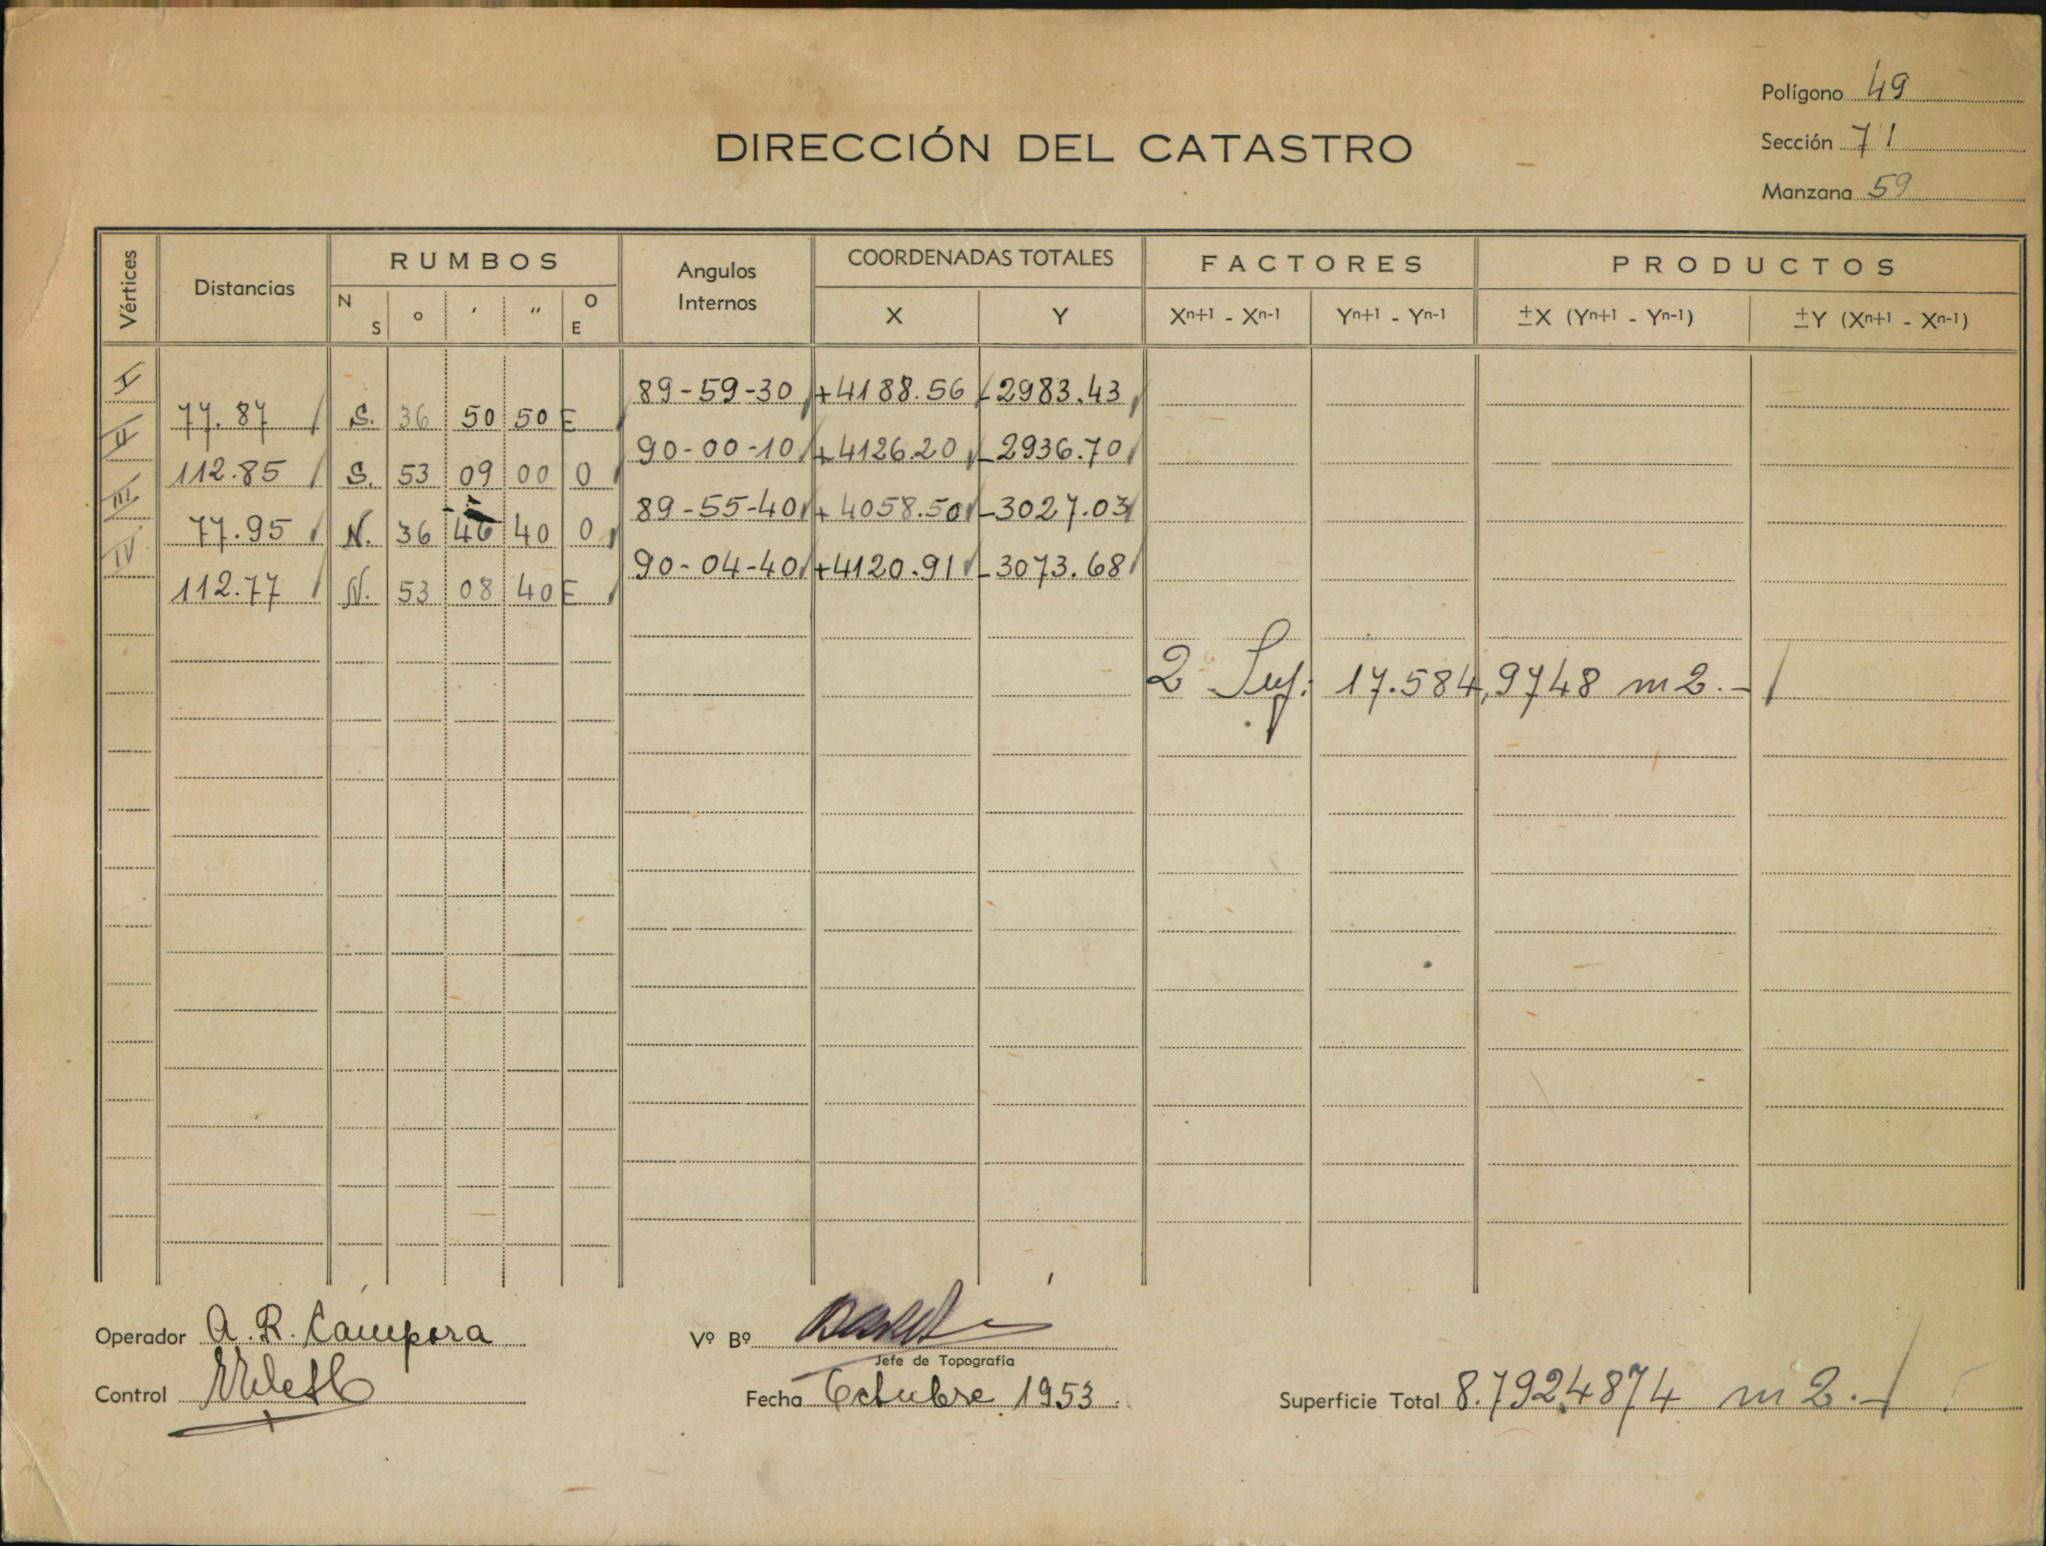 Polígono 49
DIRECCIÓN DEL CATASTRO
Sección 71
Manzana 59
Vértices Distancias RUMBOS Angulos Internos COORDENADAS TOTALES FACTORES PRODUCTOS
N S o ' " O E X Y Xn+1 - Xn-1 Yn+1 - Yn-1 ±X (Yn+1 - Yn-1) ±Y (Xn+1 - Xn-1)
I 89-59-30 +4188.56 -2983.43
77.87 S. 36 50 50 E
II 90-00-10 +4126.20 -2936.70
112.85 S. 53 09 00 O
III 89-55-40 +4058.50 -3027.03
77.95 N. 36 46 40 O
IV 90-04-40 +4120.91 -3073.68
112.77 N. 53 08 40 E
2 Sup: 17.584,9748 m2.-
Operador A. R. Campora
Vº Bº
Jefe de Topografía
Control
Fecha Octubre 1953.
Superficie Total 8.792,4874 m2.-